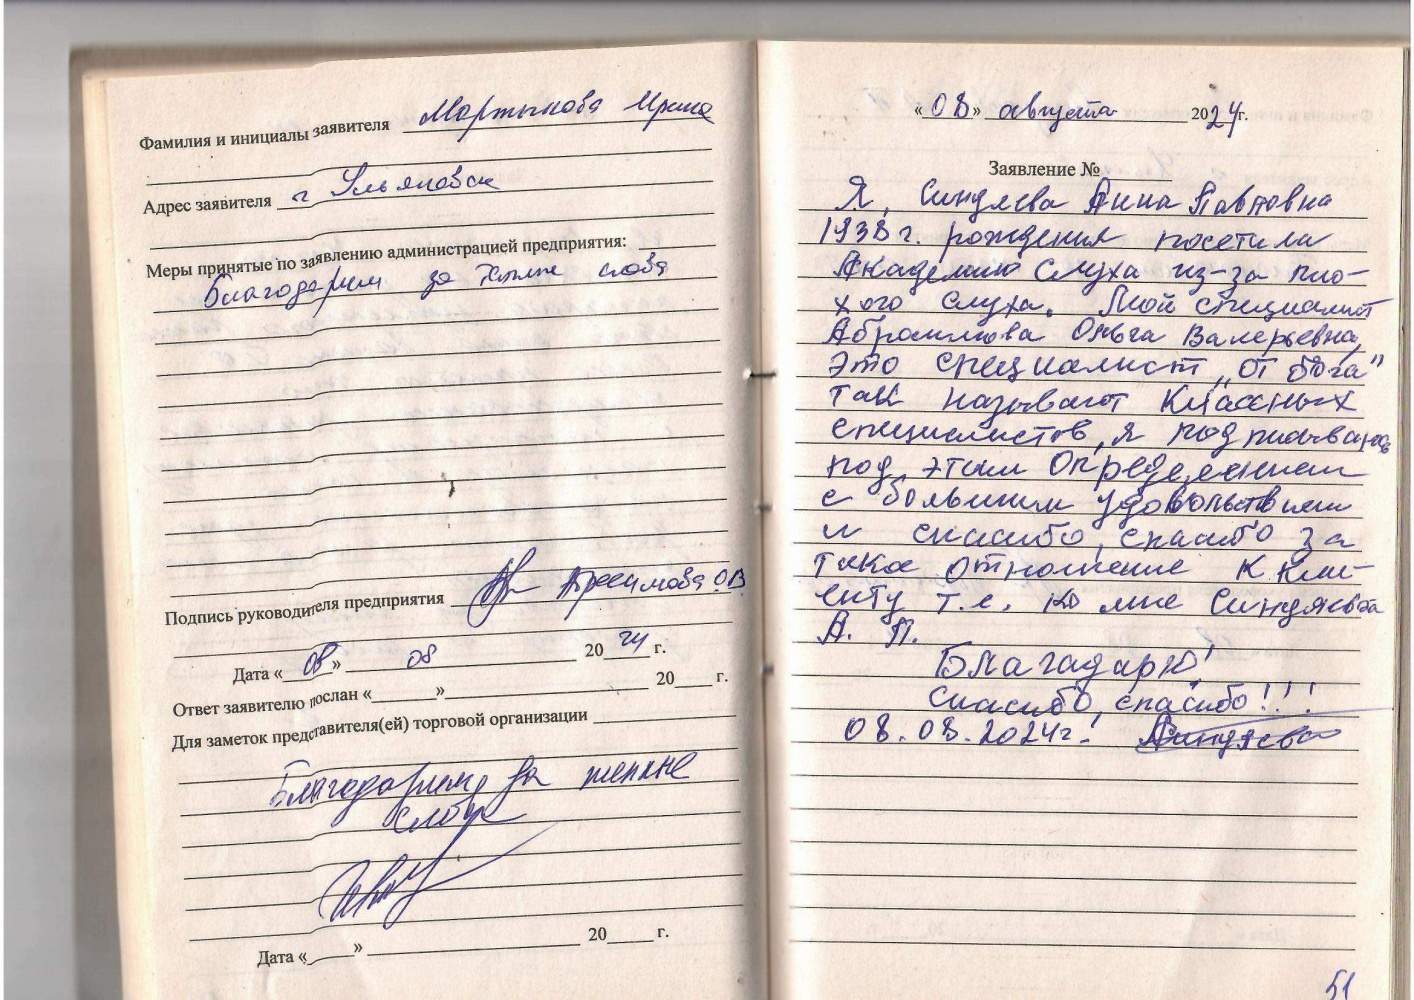 Фамилия и инициалы заявителя Мартынова Ирина
Адрес заявителя г Ульяновск
Меры принятые по заявлению администрацией предприятия:
Благодарим за слова
Подпись руководителя предприятия О.В.
Дата «08» 08 2024 г.
Ответ заявителю послан «» 20 г.
Для заметок представителя(ей) торговой организации
Благодарим за теплые
слова
Дата «» 20 г.
«08» августа 2024г.
Заявление №
Я, Синдяева Анна Павловна
1938г. рождения посетила
Академию Слуха из-за пло-
хого слуха. Мой специалист
Ольга Валерьевна,
это специалист „от бога”
так называют классных
специалистов, я подписываюсь
под этим определением
с большим удовольствием
и спасибо, спасибо за
такое отношение к кли-
енту т.е. ко мне Синдяева
А. П.
Благадарю!
Спасибо, спасибо!!!
08.08.2024г. Синдяева
51